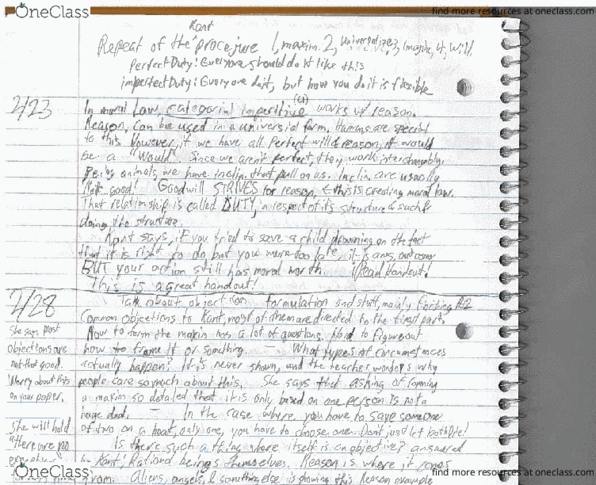 OneClass
find more resources at oneclass.com
Kant
Repeat of the procejure 1, maxim. 2, universalize 3, imagine, 4, will.
Perfect Duty: Everyone should do it like this
imperfect Duty: Everyone do it, but how you do it is flexible
2/23
In moral Law, categorial imperitive (CI) works w/ reason.
Reason, can be used in a universal form. Humans are special
to this. However, if we have all perfect will & reason, it would
be a "Would". Since we aren't perfect, they work interchangably.
Being animals, we have inclin. that pull on us. Inclin. are usually
Not good! Goodwill STRIVES for reason, & this is creating moral law.
That relationship is called DUTY, a respect of its structure & such &
doing the structure.
Kant says, if you tried to save a child drowning on the fact
that it is right to do but you were too late, it is outcome
BUT your action still has moral worth. Read handout!
This is a great handout!
2/28
Talk about objection formulation and stuff, mainly for
Common objections to Kant, most of them are directed to the first part.
How to form the maxim has a lot of questions. Hard to figure out
how to frame it or something. What types of circumstances
actually happen? It is never shown, and the teacher wonders why
people care so much about this. She says that asking of forming
a maxim so detailed that it is only based on one person is not a
huge deal. In the case where, you have to save someone
of two on a boat, only one, you have to choose one. Don't just let both Die!
Is there such a thing where itself is an objective? answered
by Kant, Rational beings themselves. Reason is where it comes
from. aliens, angels, & something else is showing this Reason example
She says most
objections are
not that good.
Worry about this
on your paper.
She will hold
"There are no
OneClass
find more resources at oneclass.com